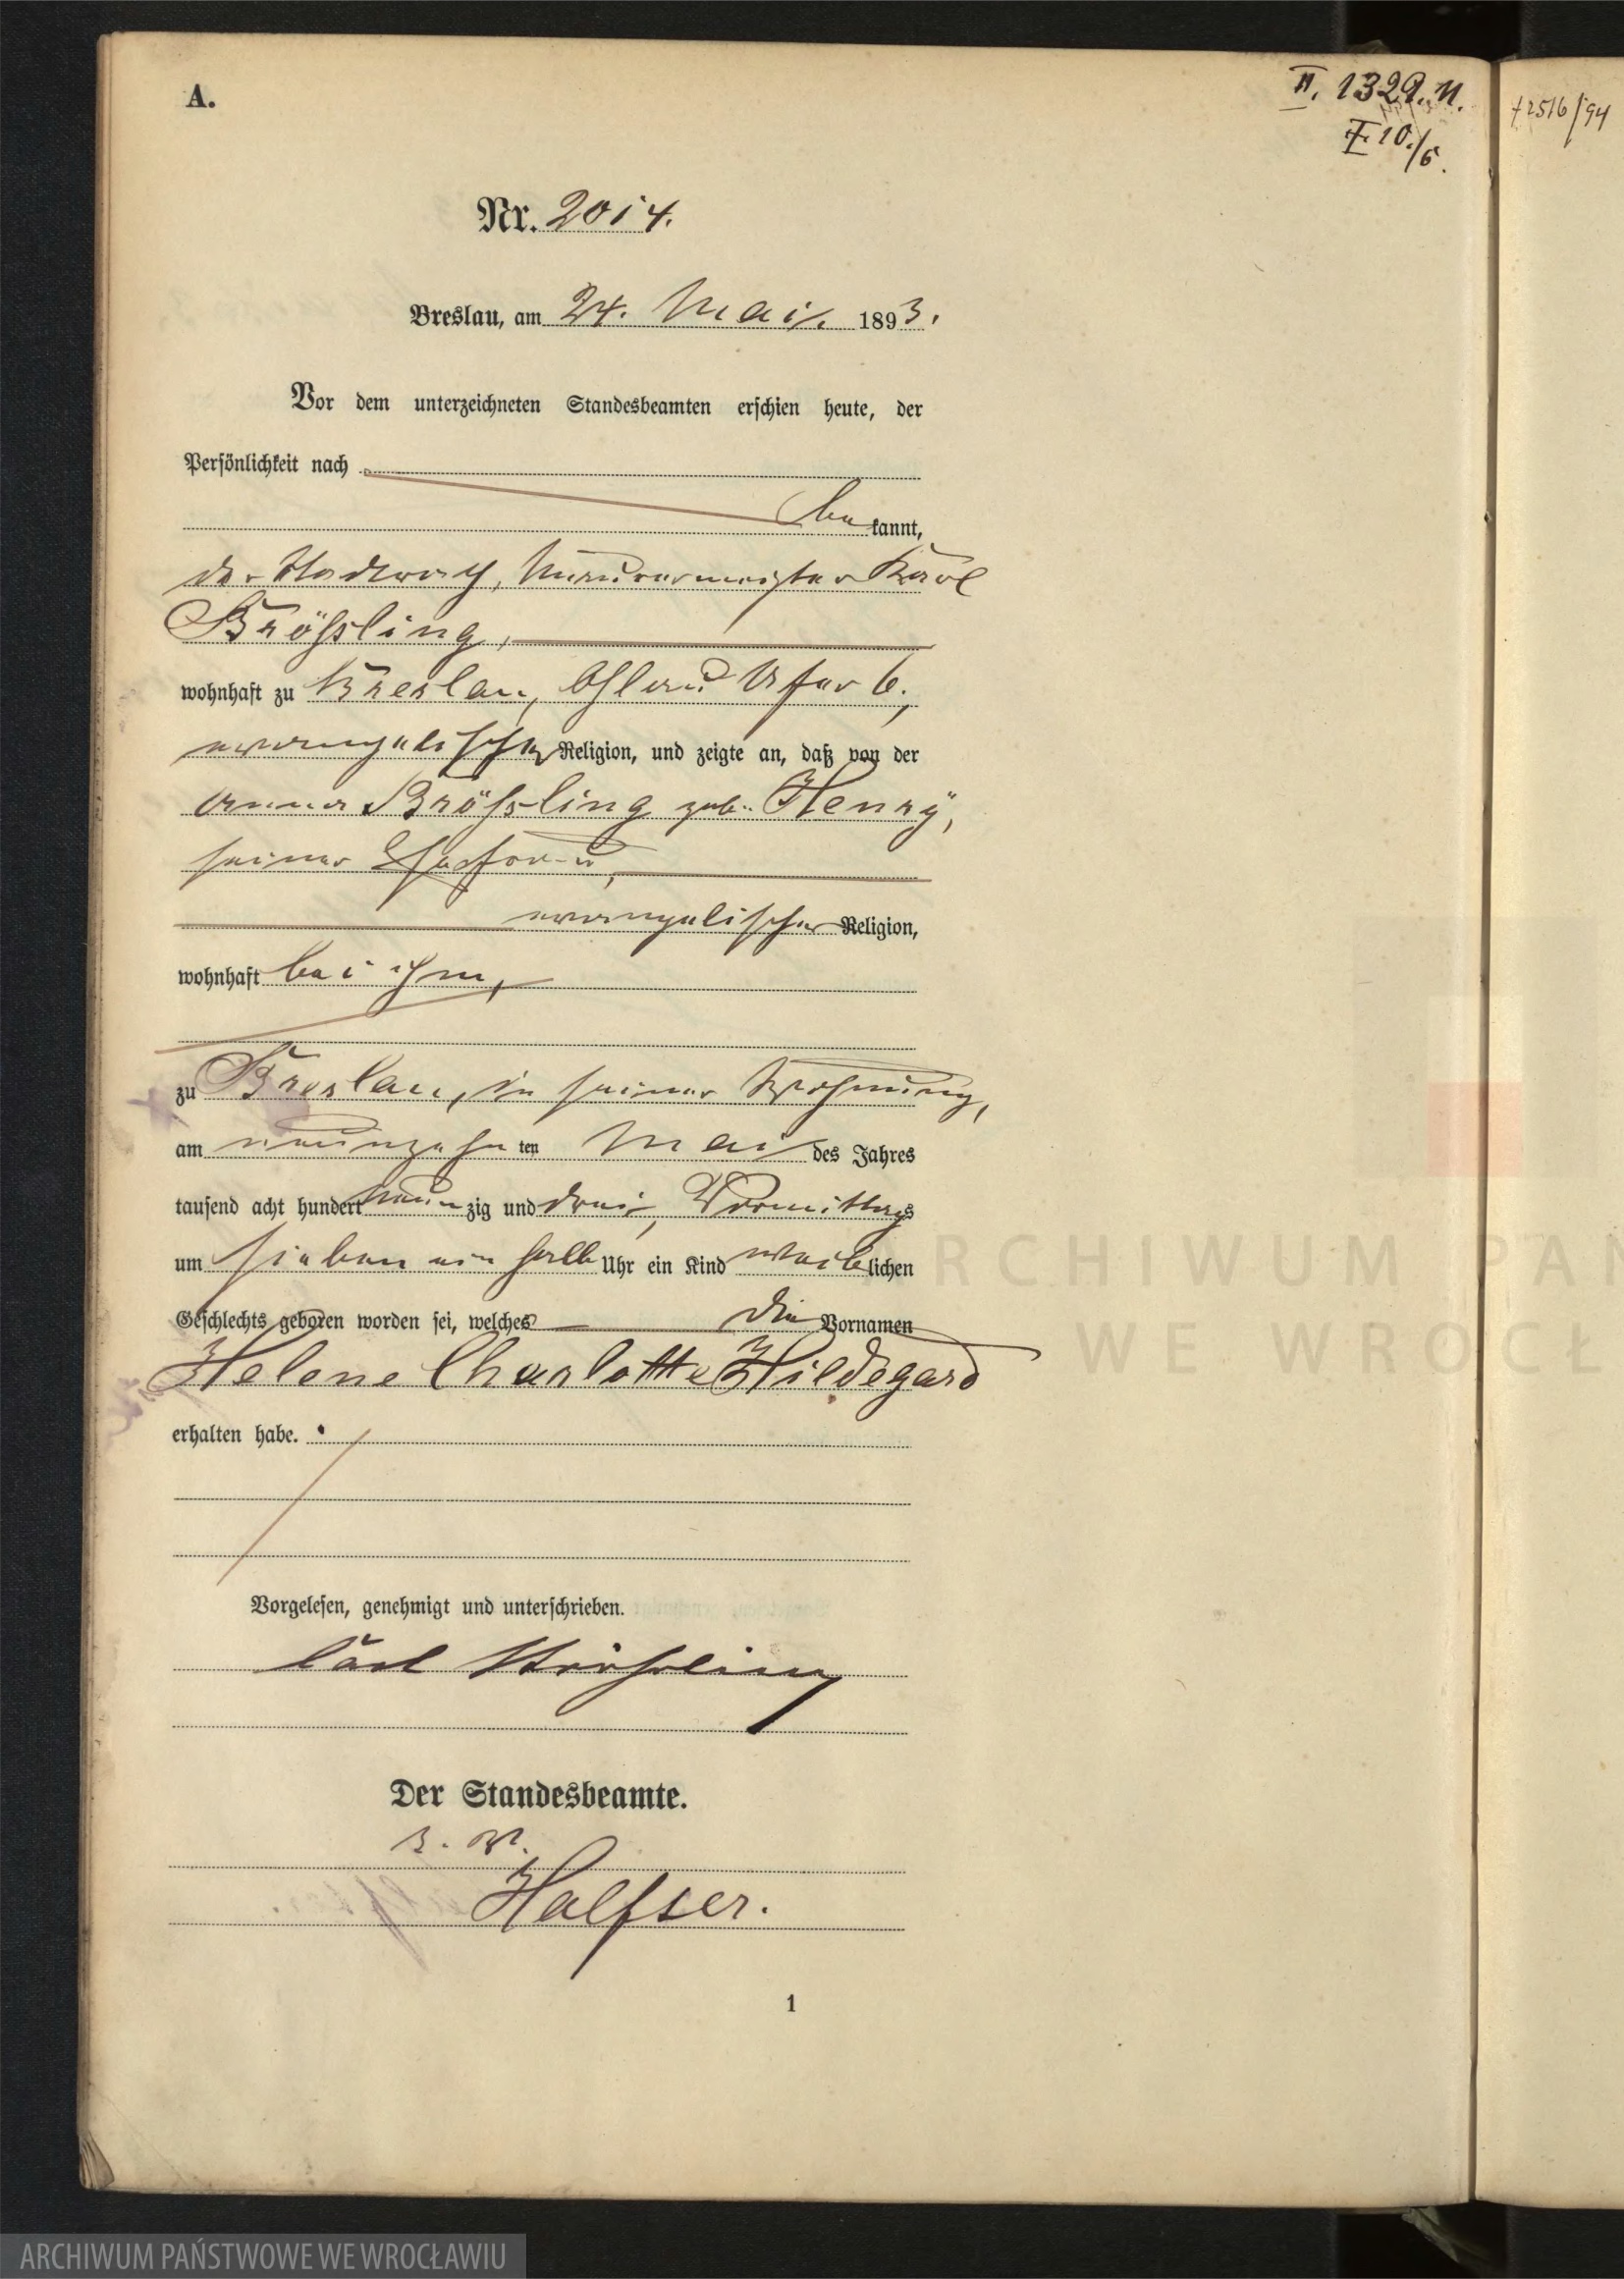 A.
II. 1329. 11.
I 10./6.
+2516/94
Nr. 2014.
Breslau, am 24. Mai 1893.
Vor dem unterzeichneten Standesbeamten erschien heute, der
Persönlichkeit nach
bekannt,
der Stadtrath, Maurermeister Karl
Brößling,
wohnhaft zu Breslau, Ohlau Ufer 6,
evangelischer Religion, und zeigte an, daß von der
Anna Brößling geb. Henrÿ,
seiner Ehefrau,
evangelischer Religion,
wohnhaft bei ihm,
zu Breslau, in seiner Wohnung,
am neunzehnten Mai des Jahres
tausend acht hundert neunzig und drei, Vormittags
um sieben ein halb Uhr ein Kind weiblichen
Geschlechts geboren worden sei, welches die Vornamen
Helene Charlotte Hildegard
erhalten habe.
Vorgelesen, genehmigt und unterschrieben.
Carl Brößling
Der Standesbeamte.
Halfser.
1
ARCHIWUM PAN
WE WROCŁ
ARCHIWUM PAŃSTWOWE WE WROCŁAWIU